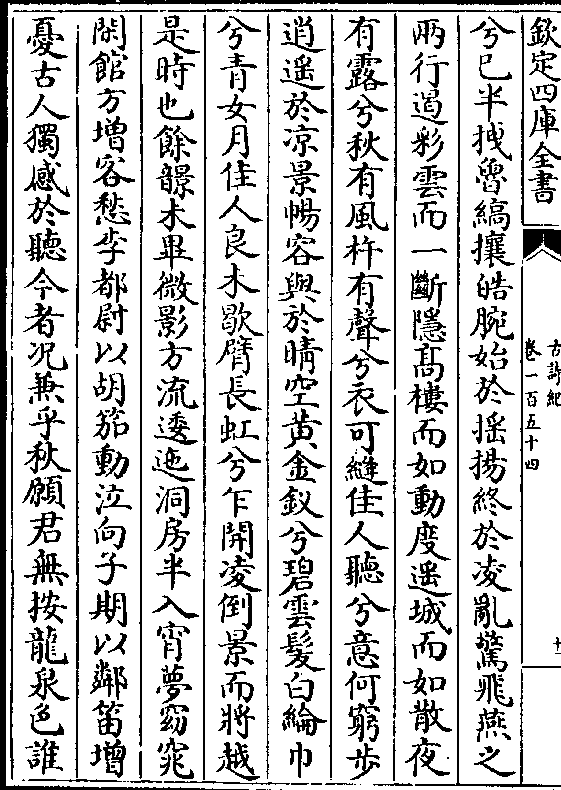 欽定四庫全書
古詩紀
卷一百五十四
十一
兮已半拽魯縞攘皓腕始於揺揚終於凌亂驚飛燕之
兩行遏彩雲而一斷隱髙樓而如動度遥城而如散夜
有露兮秋有風杵有聲兮衣可縫佳人聽兮意何窮步
逍遥於凉景暢容與於晴空黄金釵兮碧雲髮白綸巾
兮青女月佳人良未歇臂長虹兮乍開凌倒景而將越
是時也餘韻未畢微影方流逶迤洞房半入宵夢窈窕
閑館方增客愁李都尉以胡笳動泣向子期以鄰笛增
憂古人獨感於聽今者况兼乎秋願君無按龍泉色誰